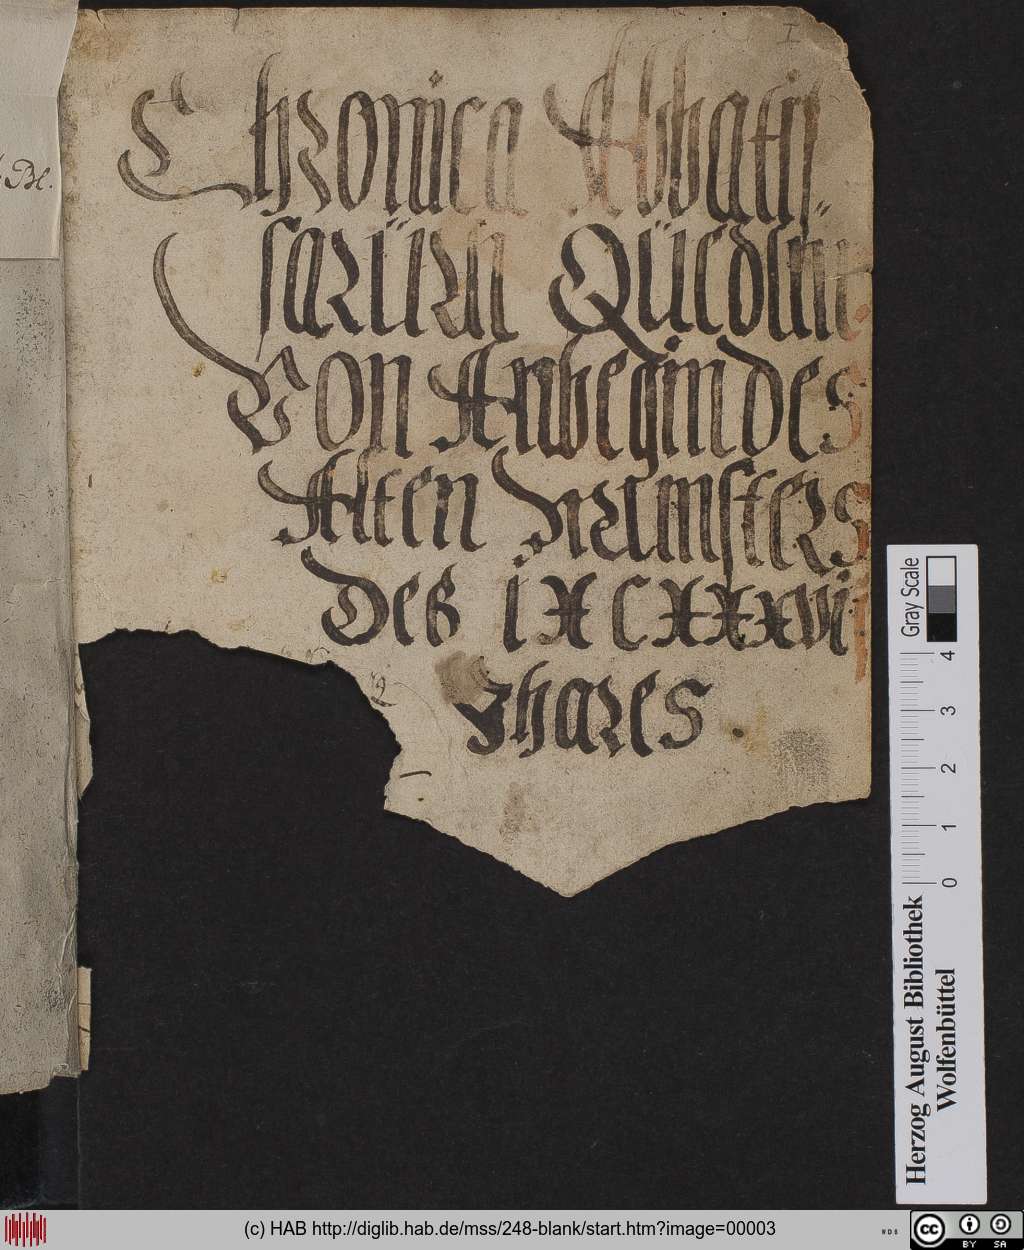 I
Bl.
Chronica Abbatis
sarüm Quedlin
Von Anbegin des
Alten Munsters
Des IXCXXXVI
Jhares
Gray Scale
4
3
2
1
0
Herzog August Bibliothek
Wolfenbüttel
(c) HAB http://diglib.hab.de/mss/248-blank/start.htm?image=00003
WDB
cc
BY SA